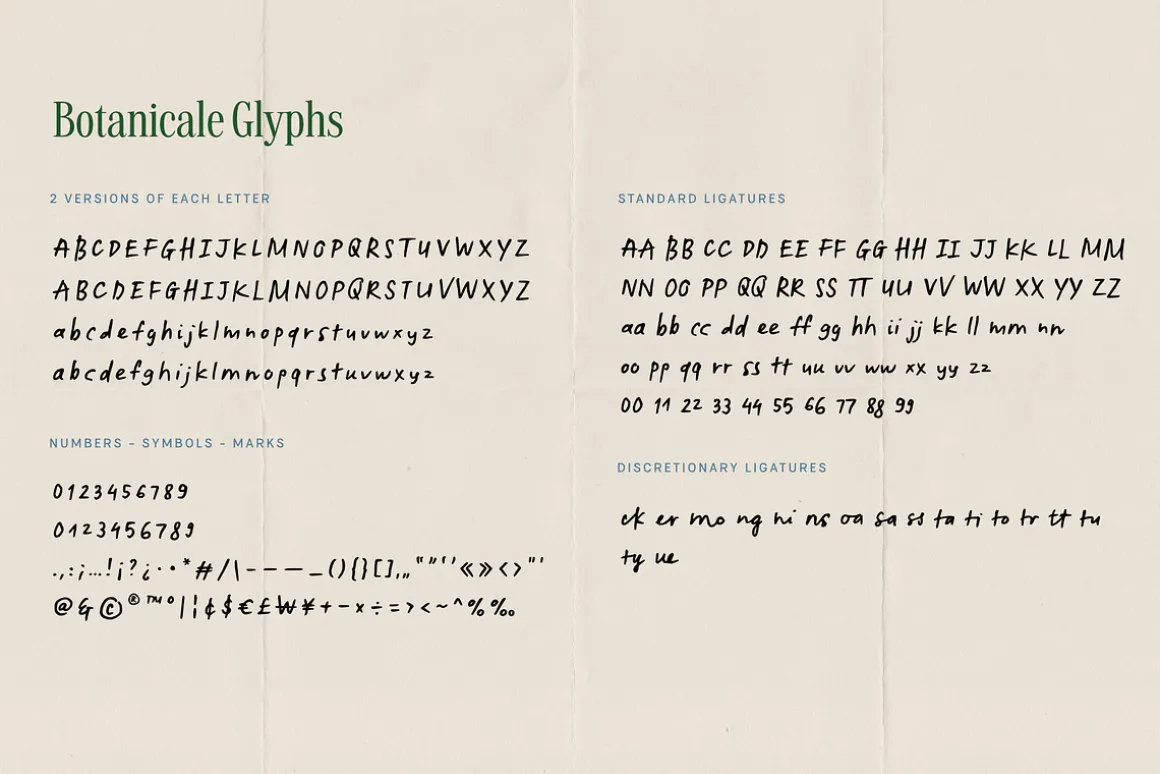 Botanicale Glyphs
2 VERSIONS OF EACH LETTER
ABCDEFGHIJKLMNOPQRSTUVWXYZ
ABCDEFGHIJKLMNOPQRSTUVWXYZ
abcdefghijklmnopqrstuvwxyz
abcdefghijklmnopqrstuvwxyz
NUMBERS - SYMBOLS - MARKS
0123456789
0123456789
.,:;…!¡?¿··*#/\-–—_(){}[]‚„“”‘’«»‹›"'
@&©®™°|¦¢$€£₩¥+−×÷=><~^%‰
STANDARD LIGATURES
AA BB CC DD EE FF GG HH II JJ KK LL MM
NN OO PP QQ RR SS TT UU VV WW XX YY ZZ
aa bb cc dd ee ff gg hh ii jj kk ll mm nn
oo pp qq rr ss tt uu vv ww xx yy zz
00 11 22 33 44 55 66 77 88 99
DISCRETIONARY LIGATURES
ck er mo ng ni ns oa sa ss ta ti to tr tt tu
ty ue